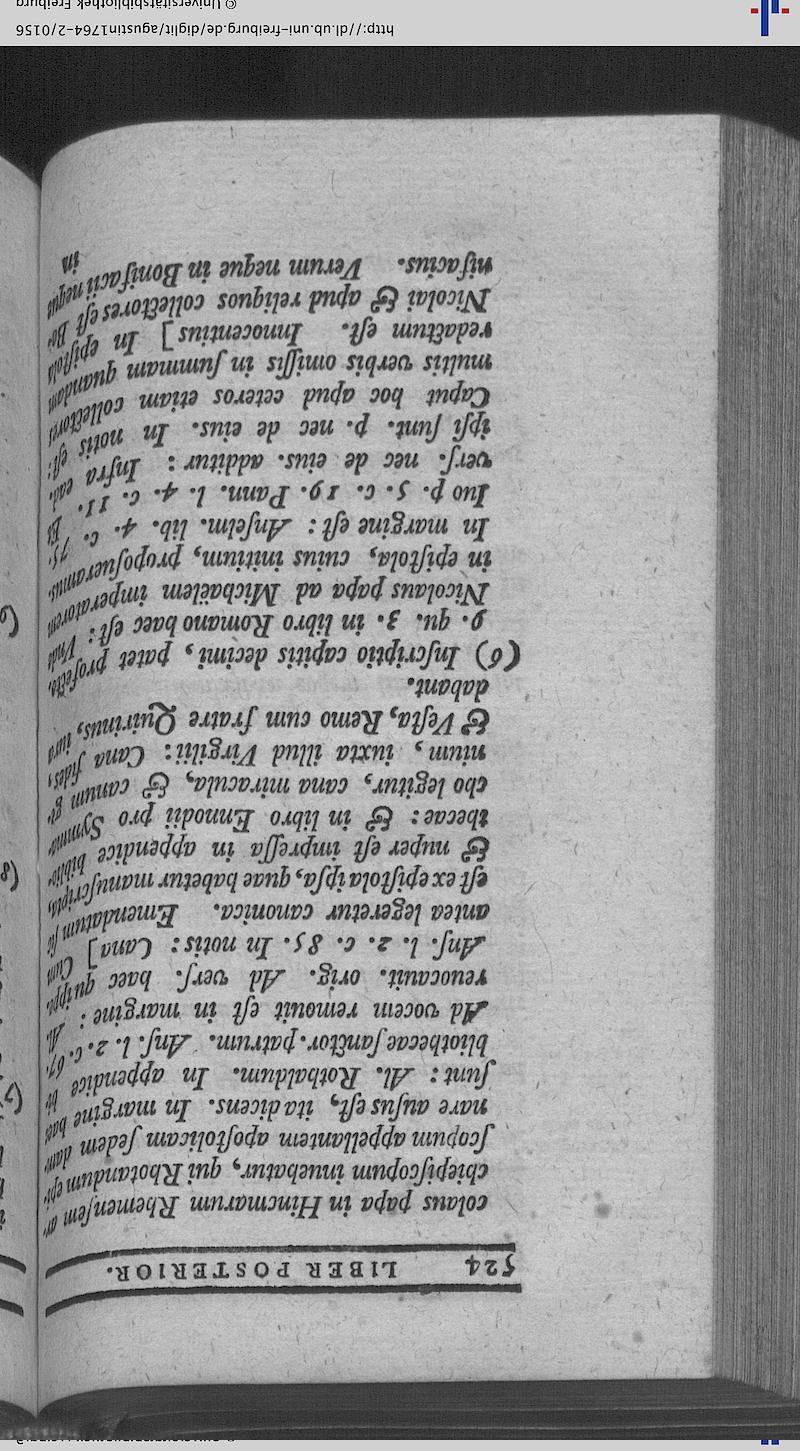 524 LIBER POSTERIOR.
colaus papa in Hincmarum Rhemensem ar-
chiepiscopum inuebatur, qui Rhotandum epi-
scopum appellantem apostolicam sedem dam-
nare ausus est, ita dicens. In margine haec
sunt: Al. Rothaldum. In appendice bi-
bliothecae sanctor. patrum. Ans. l. 2. c. 67.
Ad vocem remouit est in margine: Al.
reuocauit. orig. Ad vers. haec quippe
Ans. l. 2. c. 85. In notis: Cana] Cum
antea legeretur canonica. Emendatum sic
est ex epistola ipsa, quae habetur manuscripta,
& nuper est impressa in appendice biblio-
thecae: & in libro Ennodii pro Symma-
cho legitur, cana miracula, & canum ge-
nium, iuxta illud Virgilii: Cana fides,
& Vesta, Remo cum fratre Quirinus, iura
dabant.
(6) Inscriptio capitis decimi, patet profecto
9. qu. 3. in libro Romano haec est: Vnde
Nicolaus papa ad Michaëlem imperatorem
in epistola, cuius initium, proposueramus.
In margine est: Anselm. lib. 4. c. 75.
Iuo p. 5. c. 19. Pann. l. 4. c. 11. Et
vers. nec de eius. additur: Infra ead.
ipsi sunt. p. nec de eius. In notis est:
Caput hoc apud ceteros etiam collectores
multis verbis omissis in summam quandam
redactum est. Innocentius] In epistola
Nicolai & apud reliquos collectores est Bo-
nifacius. Verum neque in Bonifacii neque
in
http://dl.ub.uni-freiburg.de/diglit/augustin1764-2/0156
© Universitätsbibliothek Freiburg